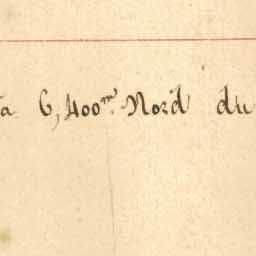 a 6,400m Nord du